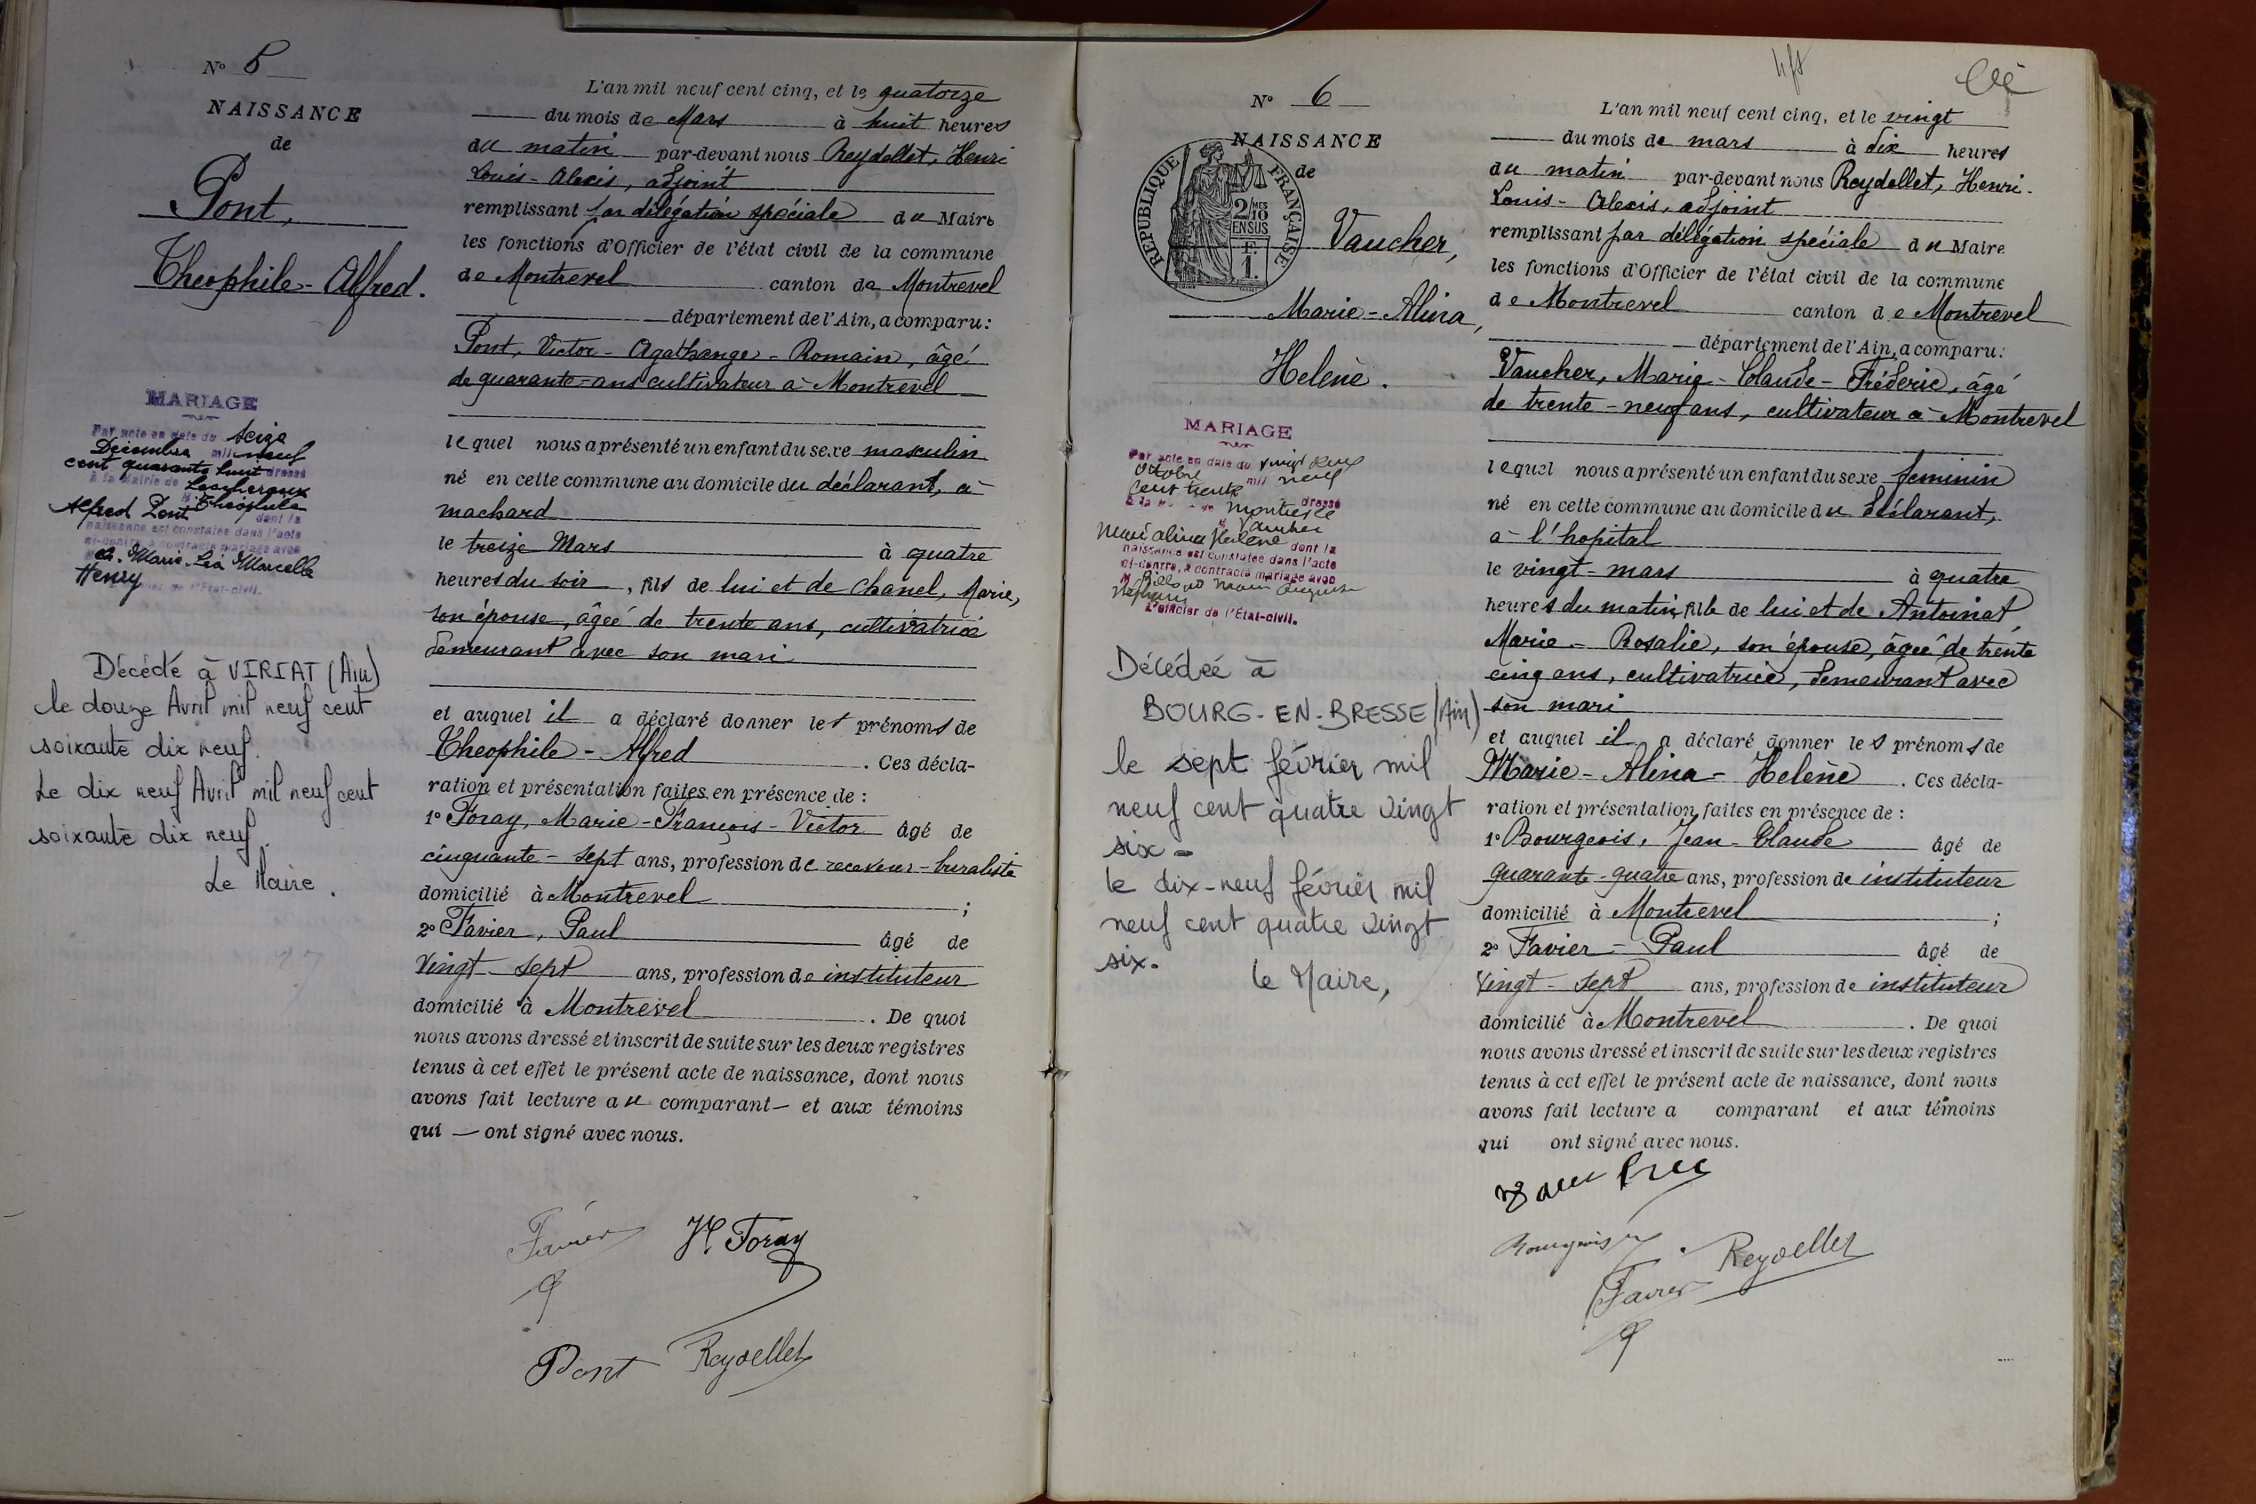 N° 5
NAISSANCE
de
Pont,
Théophile-Alfred.
MARIAGE
Par acte en date du seize
Décembre mil neuf
cent quarante huit dressé
à la Mairie de Lescheroux
M. Théophile
Alfred Pont dont la
naissance est constatée dans l'acte
ci-contre, a contracté mariage avec
Marie-Léa Marcelle
Henry
de l'État-civil.
Décédé à VIRIAT (Ain)
le douze Avril mil neuf cent
soixante dix neuf.
Le dix neuf Avril mil neuf cent
soixante dix neuf.
Le Maire.
L'an mil neuf cent cinq, et le quatorze
du mois de Mars à huit heures
du matin par-devant nous Reydellet, Henri
Louis-Alexis, adjoint
remplissant par délégation spéciale du Maire
les fonctions d'Officier de l'état civil de la commune
de Montrevel canton de Montrevel
département de l'Ain, a comparu:
Pont, Victor-Agathange-Romain, âgé
de quarante-ans cultivateur à Montrevel
lequel nous a présenté un enfant du sexe masculin
né en cette commune au domicile du déclarant, à
machard
le treize Mars à quatre
heures du soir, fils de lui et de Chanel, Marie,
son épouse, âgée de trente ans, cultivatrice
demeurant avec son mari
et auquel il a déclaré donner les prénoms de
Theophile-Alfred. Ces décla-
ration et présentation faites en présence de:
1° Foray, Marie-François-Victor âgé de
cinquante-sept ans, profession de receveur-buraliste
domicilié à Montrevel;
2° Favier, Paul âgé de
vingt-sept ans, profession de instituteur
domicilié à Montrevel. De quoi
nous avons dressé et inscrit de suite sur les deux registres
tenus à cet effet le présent acte de naissance, dont nous
avons fait lecture au comparant — et aux témoins
qui — ont signé avec nous.
Favier
Foray
Pont
Reydellet
N° 6
NAISSANCE
de
RÉPUBLIQUE FRANÇAISE
2/10 MES
EN SUS
F.
1.
Vaucher,
Marie-Alina,
Helène.
MARIAGE
Par acte en date du vingt deux
octobre mil neuf
cent trente
dressé
à la
Vaucher
Marie alina Helène dont la
naissance est constatée dans l'acte
ci-contre, a contracté mariage avec
L'officier de l'État-civil.
Décédée à
BOURG-EN-BRESSE (Ain)
le sept février mil
neuf cent quatre vingt
six-
le dix-neuf février mil
neuf cent quatre vingt
six.
le Maire,
L'an mil neuf cent cinq, et le vingt
du mois de mars à dix heures
du matin par-devant nous Reydellet, Henri-
Louis-Alexis, adjoint
remplissant par délégation spéciale du Maire
les fonctions d'Officier de l'état civil de la commune
de Montrevel canton de Montrevel
département de l'Ain, a comparu:
Vaucher, Marie-Claude-Fréderic, âgé
de trente-neuf ans, cultivateur à Montrevel
lequel nous a présenté un enfant du sexe feminin
né en cette commune au domicile du déclarant,
à l'hopital
le vingt-mars à quatre
heures du matin, fille de lui et de Antoinat,
Marie-Rosalie, son épouse, âgée de trente
cinq ans, cultivatrice, demeurant avec
son mari
et auquel il a déclaré donner les prénoms de
Marie-Alina-Helène. Ces décla-
ration et présentation faites en présence de:
1° Bourgeois, Jean-Claude âgé de
quarante-quatre ans, profession de instituteur
domicilié à Montrevel;
2° Favier-Paul âgé de
vingt-sept ans, profession de instituteur
domicilié à Montrevel. De quoi
nous avons dressé et inscrit de suite sur les deux registres
tenus à cet effet le présent acte de naissance, dont nous
avons fait lecture a comparant et aux témoins
qui ont signé avec nous.
Bourgeois
Reydellet
Favier